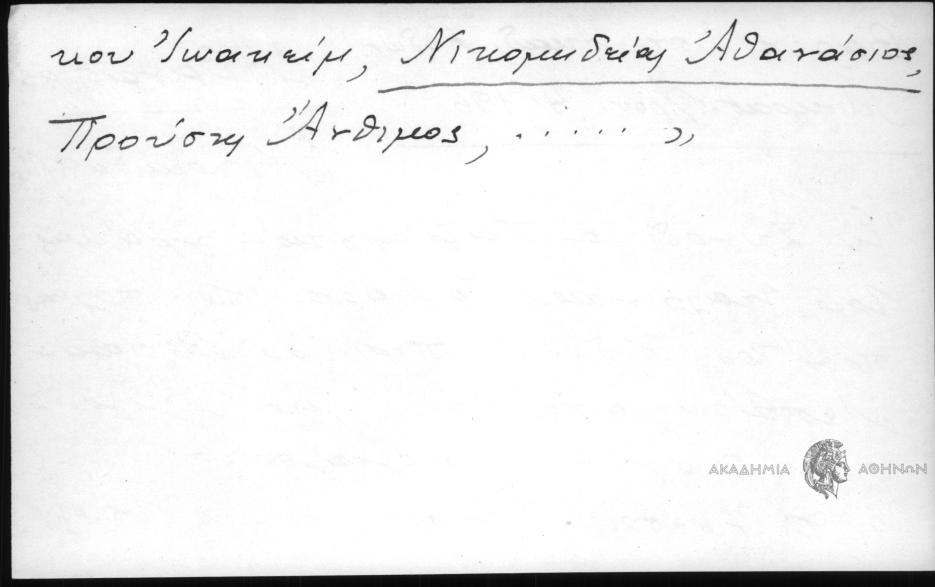 κου Ἰωακείμ, Νικομηδείας Ἀθανάσιος,
Προύσης Ἄνθιμος, ...... »
ΑΚΑΔΗΜΙΑ ΑΘΗΝΩΝ